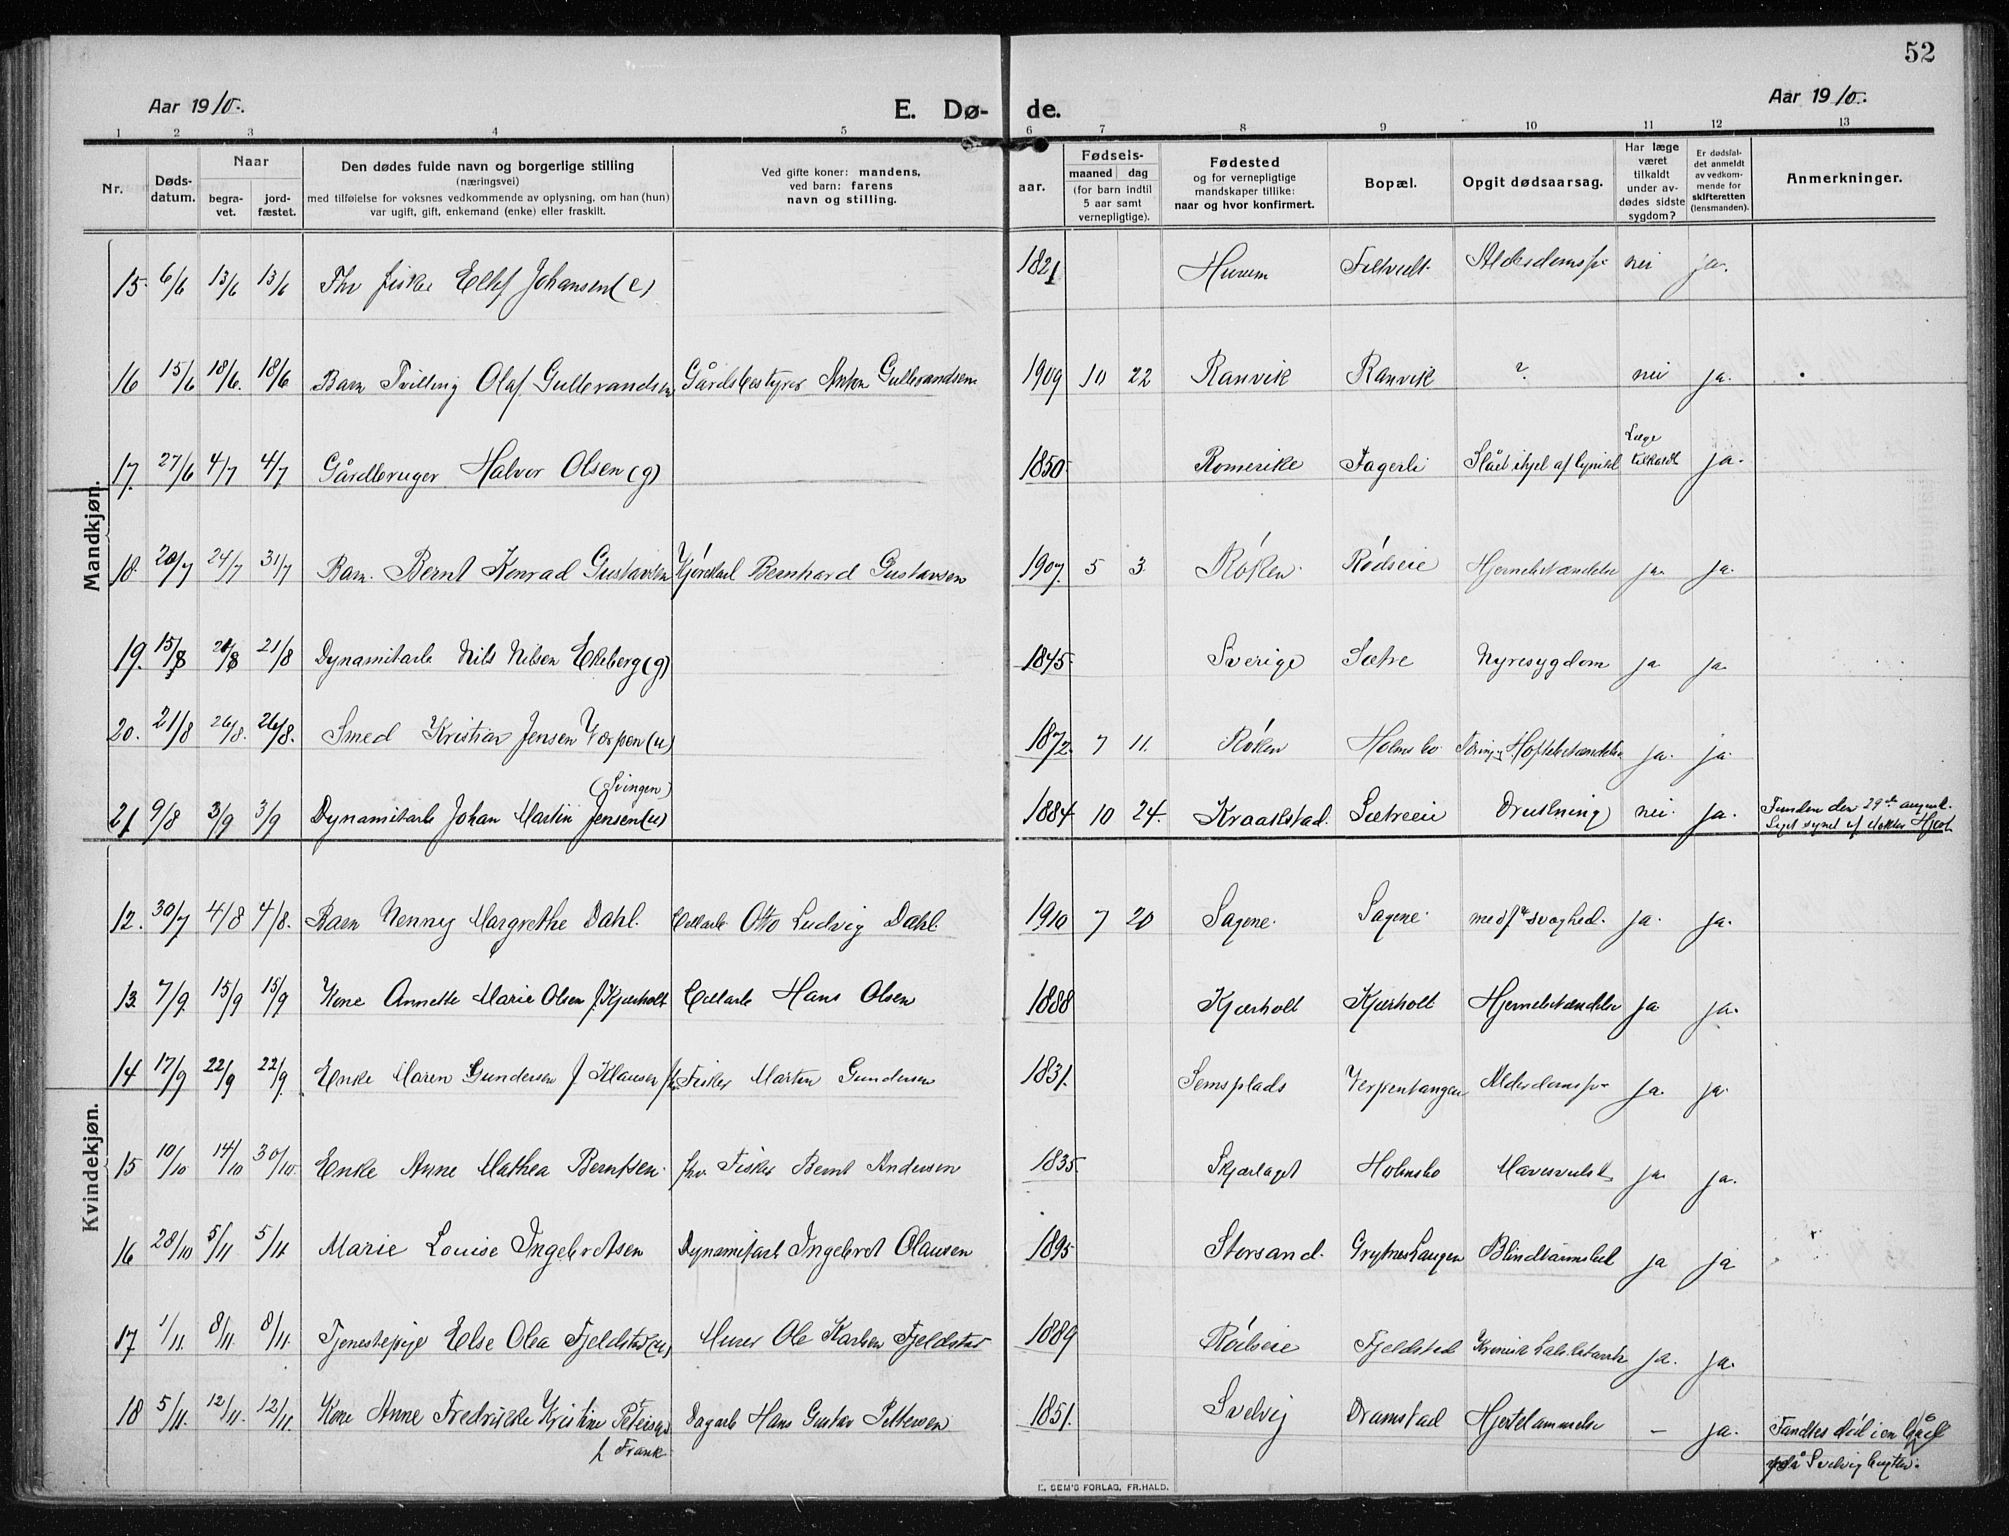 52
Aar 1910. E. Dø- de. Aar 1910.
1 2 3 4 5 6 7 8 9 10 11 12 13
Nr.
Døds-
datum.
Naar
begra-
vet.
jord-
fæstet.
Den dødes fulde navn og borgerlige stilling
(næringsvei)
med tilføielse for voksnes vedkommende av oplysning, om han (hun)
var ugift, gift, enkemand (enke) eller fraskilt.
Ved gifte koner: mandens,
ved barn: farens
navn og stilling.
aar.
Fødsels-
maaned dag
(for barn indtil
5 aar samt
vernepligtige).
Fødested
og for vernepligtige
mandskaper tillike:
naar og hvor konfirmert.
Bopæl.
Opgit dødsaarsag.
Har læge
været
tilkaldt
under av-
dødes sidste
sygdom?
Er dødsfal-
det anmeldt
av vedkom-
mende for
skifteretten
(lensmanden).
Anmerkninger.
Mandkjøn.
15. 6/6 13/6 13/6 Fhv fisker Ellef Johansen (e) 1821 Hurum Filtvedt Alderdomssv nei ja.
16 15/6 18/6. 18/6 Barn Tvilling Olaf Gulbrandsen Gårdsbestyrer Anton Gulbrandsen 1909 10 22 Ranvik Ranvik ? nei ja.
17. 27/6 4/7 4/7 Gårdbruger Halvor Olsen (g) 1850. Romerike Fagerli Slået ihjel af Læge tilkaldt ja.
18. 20/7 24/7 31/7 Barn. Bernt Konrad Gustavsen Kjørekarl Bernhard Gustavsen 1907. 5 3. Røken Rødseie Hjernebetændelse ja. ja.
19. 15/8 21/8 21/8 Dynamitarb Nils Nilsen Ekeberg (g) 1845. Sverige Sætre Nyresygdom ja ja.
20. 21/8 26/8. 26/8. Smed Kristian Jensen Værpen (u) 1872. 7 11. Røken Holmsbo Hoftebetændelse ja. ja.
(Svingen)
21. 9/8 3/9 3/9 Dynamitarb Johan Martin Jensen (u) 1884. 10 24. Kraakstad. Sætreeie Drukning nei. ja. Funden den 29de august.
Liget synet af doktor Hjort
Kvindekjøn.
12. 30/7 4/8 4/8. Barn Nenny Margrethe Dahl. Cellarb Otto Ludvig Dahl. 1910 7 20 Sagene. Sagene. medf. svaghed. ja. ja.
13. 7/9. 15/9 15/9 Kone Annette Marie Olsen f. Kjærholt Cellarb Hans Olsen 1888 Kjærholt Kjærholt Hjernebetændelse ja ja.
14 17/9 22/9 22/9. Enke Maren Gundersen f Klausen fhv Fisker Martin Gundersen 1831. Semsplads Verpentangen Alderdomssv ja. ja.
15 10/10 14/10 30/10. Enke Anne Mathea Berntsen. fhv. Fisker Bernt Andersen 1835. Skjærlaget Holmsbo Mavesvulst ja. ja.
16 28/10 5/11 5/11 Marie Louise Ingebretsen Dynamitarb Ingebret Olausen 1895. Storsand. Grytnestangen Blindtarmsbet ja ja
17 1/11. 8/11. 8/11. Tjenestepige Else Olea Fjeldstad (u) Murer Ole Karlsen Fjeldstad 1889 Rødseie Fjeldstad Kronisk ja. ja.
18 5/11. 12/11. 12/11. Kone Anne Fredrikke Kristine Petersen Dagarb Hans Gustav Pettersen 1851. Svelvig Dramstad Hjertelammelse – ja. Fandtes død i en båd
f. Frank på Svelvigbugten.
E. SEM'S FORLAG, FR.HALD.